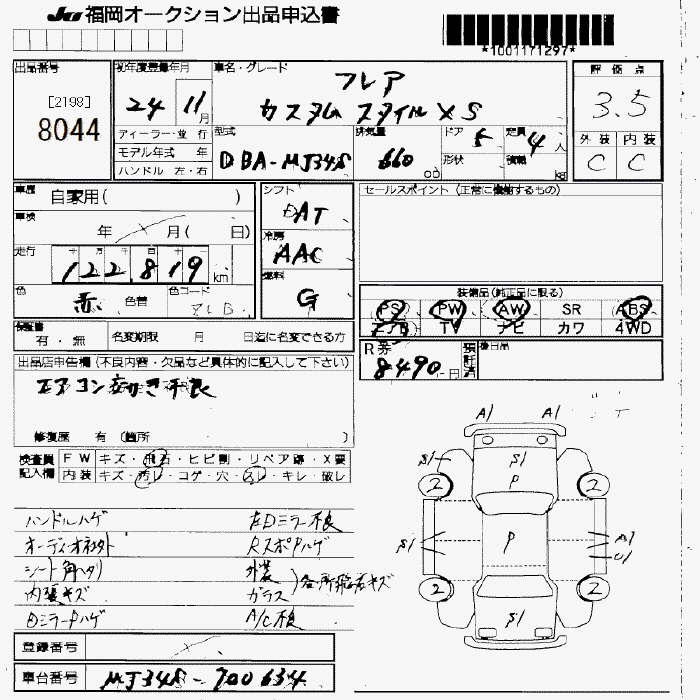 JU 福岡オークション出品申込書
*1001171297*
出品番号
[2198]
8044
初年度登録年月
24 11月
ディーラー・並行
モデル年式 年
ハンドル 左・右
車名・グレード
フレア
カスタム スタイル XS
型式
DBA-MJ34S
排気量
660 CC
ドア 5
形状
定員 4人
積載 kg
評価点
3.5
外装 内装
C C
車歴 自家用( )
車検 年 月( 日)
走行 122,819 km
色 赤 色替 色コード
シフト
DAT
冷房
AAC
燃料
G
セールスポイント(正常に機能するもの)
装備品(純正品に限る)
PS PW AW SR ABS
エアB TV ナビ カワ 4WD
保証書 有・無
名変期限 月 日迄に名変できる方
R券 8490円
預託済
後日品
出品店申告欄(不良内容・欠品など具体的に記入して下さい)
エアコン 不良
修復歴 有(箇所 )
検査員記入欄
FW キズ・飛石・ヒビ割・リペア跡・X要
内装 キズ・汚レ・コゲ・穴・スレ・キレ・破レ
ハンドルハゲ
左Dミラー不良
シート角ヘタリ
外装
内張キズ
ガラス
各所飛石キズ
A/C不良
A1 A1
S1 S1
P
2 2
S1 P A1
U1
2 2
S1
登録番号
車台番号 MJ34S-700634